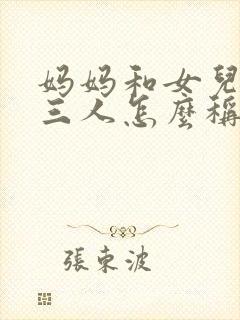 妈妈和女兒
三人怎麼稱
張東波